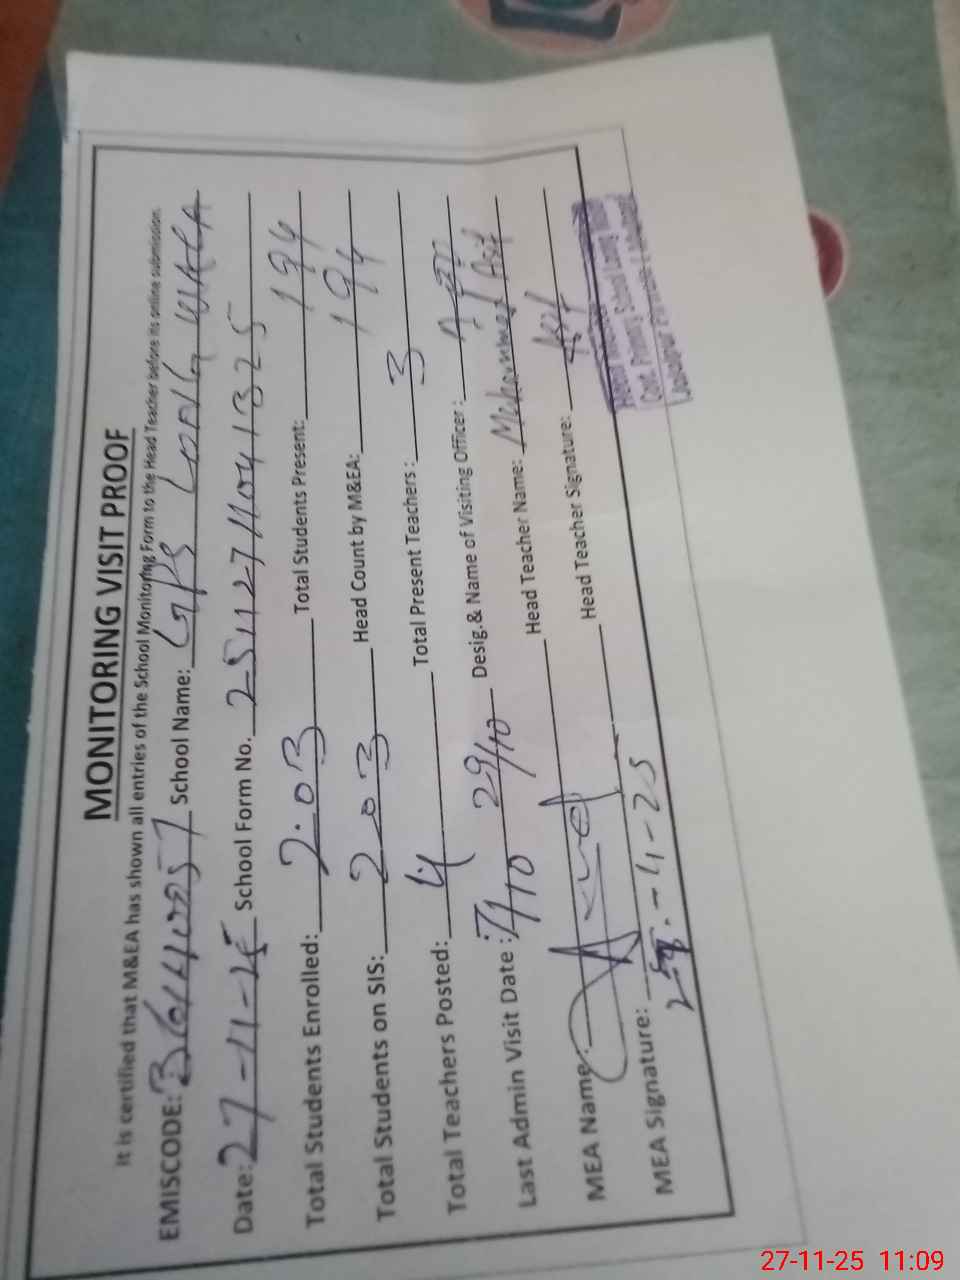 MONITORING VISIT PROOF
It is certified that M&EA has shown all entries of the School Monitoring Form to the Head Teacher before its online submission.
EMISCODE: School Name: GPS LONG WALA
Date: 27-11-25 School Form No. 25112711041325
Total Students Enrolled: 203 Total Students Present: 194
Total Students on SIS: 203 Head Count by M&EA: 194
Total Teachers Posted: 4 Total Present Teachers: 3
Last Admin Visit Date: 7/10 29/10 Desig.& Name of Visiting Officer:
MEA Name: Head Teacher Name: Mohammad Asif
MEA Signature: Head Teacher Signature: Asif
-11-25
Govt. Primary School
27-11-25 11:09